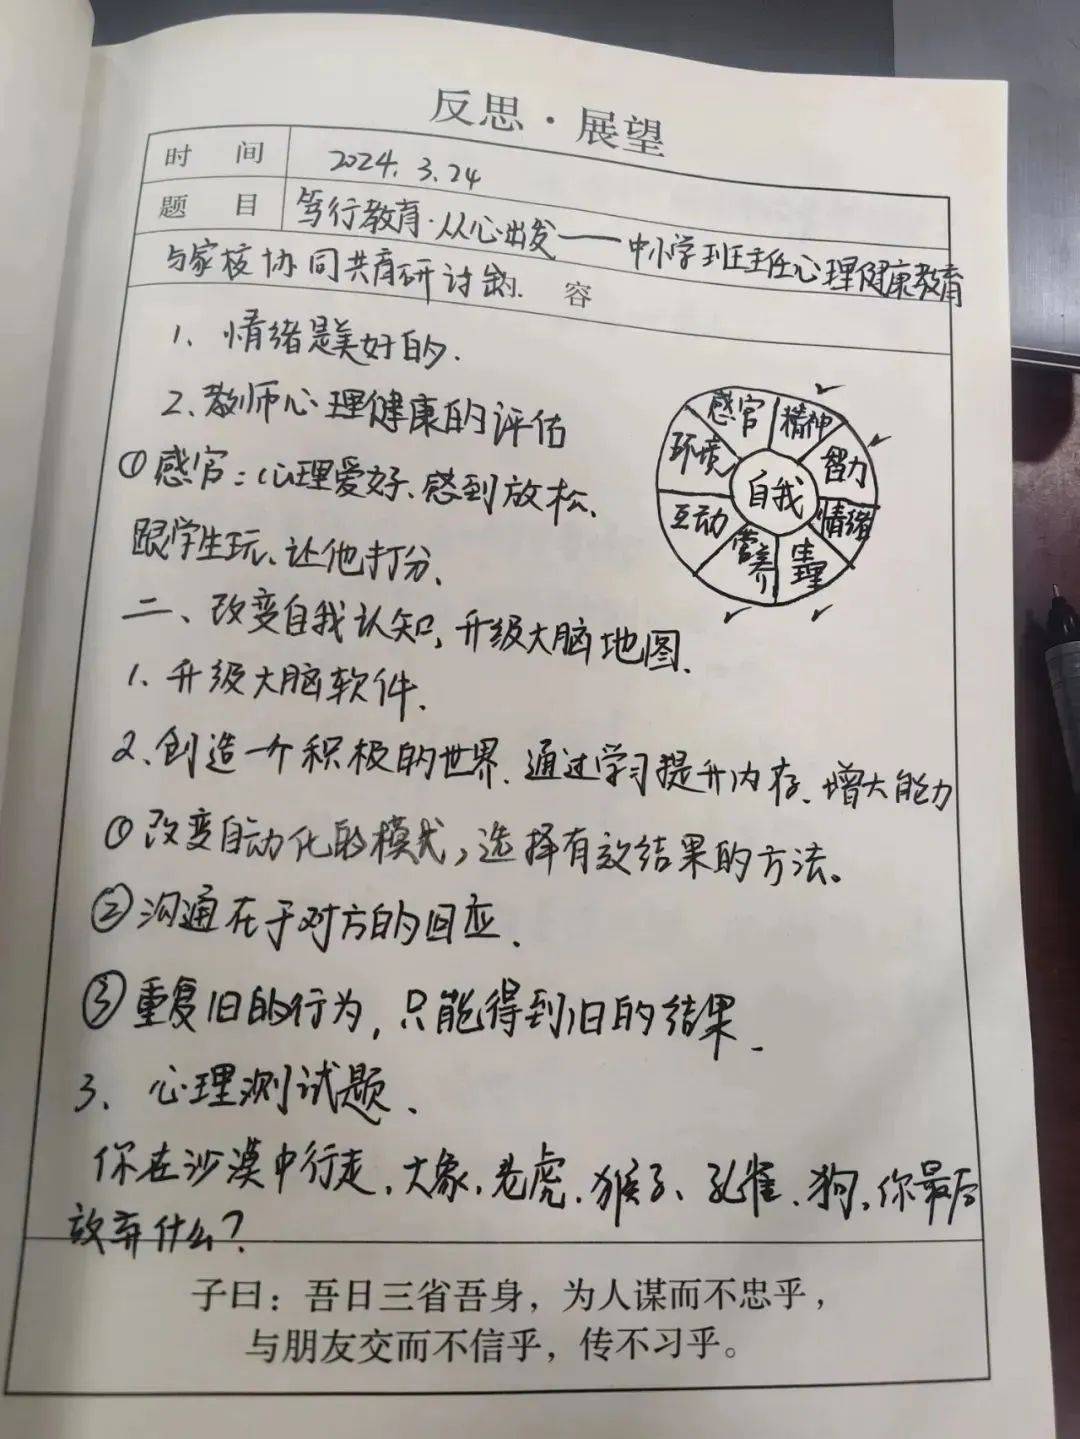 反思·展望
时 间 2024.3.24
题 目 笃行教育·从心出发——中小学班主任心理健康教育
与家校协同共育研讨会 容
1、情绪是美好的.
2、教师心理健康的评估
①感官：心理爱好、感到放松、
跟学生玩、让他打分、
感官
精神
智力
情绪
生理
营养
互动
环境
自我
二、改变自我认知,升级大脑地图、
1、升级大脑软件、
2、创造一个积极的世界、通过学习提升内存、增大能力
①改变自动化的模式,选择有效结果的方法。
②沟通在于对方的回应、
③重复旧的行为,只能得到旧的结果、
3、心理测试题、
你在沙漠中行走,大象,老虎,猴子、孔雀、狗,你最后
放弃什么?
子曰：吾日三省吾身，为人谋而不忠乎，
与朋友交而不信乎，传不习乎。